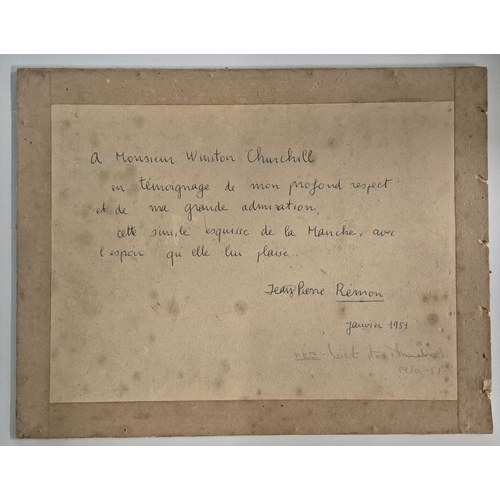 A Monsieur Winston Churchill
en témoignage de mon profond respect
et de ma grande admiration,
cette simple esquisse de la Manche, avec
l'espoir qu'elle lui plaise.
Jean-Pierre Rémon
Janvier 1951